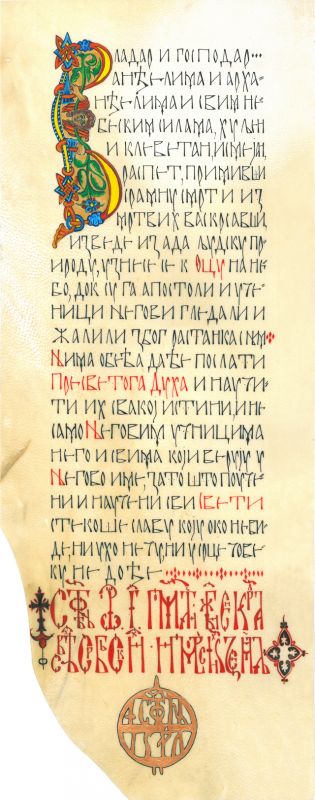 ВЛАДАР И ГОСПОДАР...
АНЂЕЛИМА И АРХА
НЂЕЛИМА И СВИМ НЕ
БЕСКИМ СИЛАМА, ХУЉЕН
И КЛЕВЕТАН, ИСМЕЈАН,
РАСПЕТ, ПРИМИВШИ
СРАМНУ СМРТ И ИЗ
МРТВИХ ВАСКРСАВШИ,
ИЗВЕДЕ ИЗ АДА ЉУДСКУ ПРИ
РОДУ, УЗНЕСЕ СЕ К ОЦУ НА НЕ
БО, ДОК СУ ГА АПОСТОЛИ И УЧЕ
НИЦИ ЊЕГОВИ ГЛЕДАЛИ И
ЖАЛИЛИ ЗБОГ РАСТАНКА С ЊИМ
ЊИМА ОБЕЋА ДА ЋЕ ПОСЛАТИ
ПРЕСВЕТОГА ДУХА И НАУЧИ
ТИ ИХ СВАКОЈ ИСТИНИ, И НЕ
САМО ЊЕГОВИМ УЧЕНИЦИМА
НЕГО И СВИМА КОЈИ ВЕРУЈУ У
ЊЕГОВО ИМЕ, ЗАТО ШТО ПОУЧЕ
НИ И НАУЧЕНИ СВИ СВЕТИ
СТЕКОШЕ СЛАВУ КОЈУ ОКО НЕ ВИ
ДЕ, НИ УХО НЕ ЧУ НИ У СРЦЕ ЧОВЕ
КУ НЕ ДОЂЕ